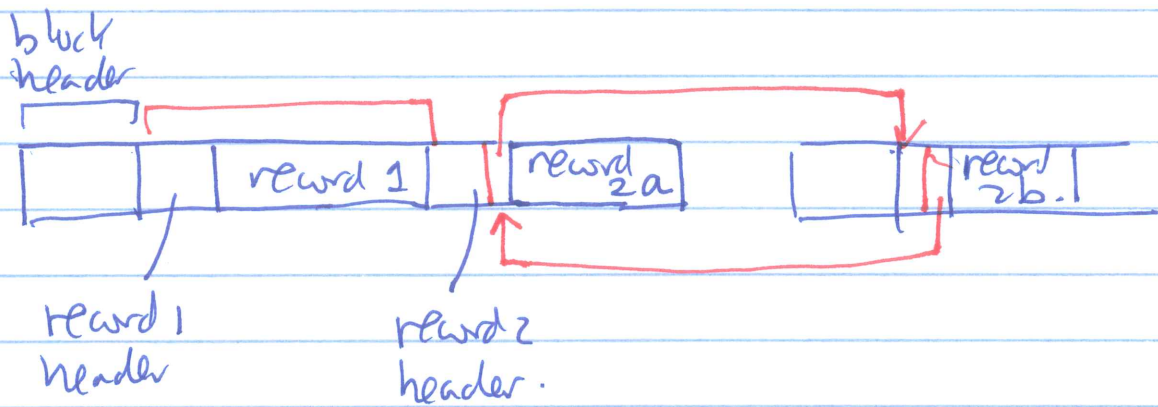 block
header
record 1
record
2a
record
2b.
record 1
header
record 2
header.